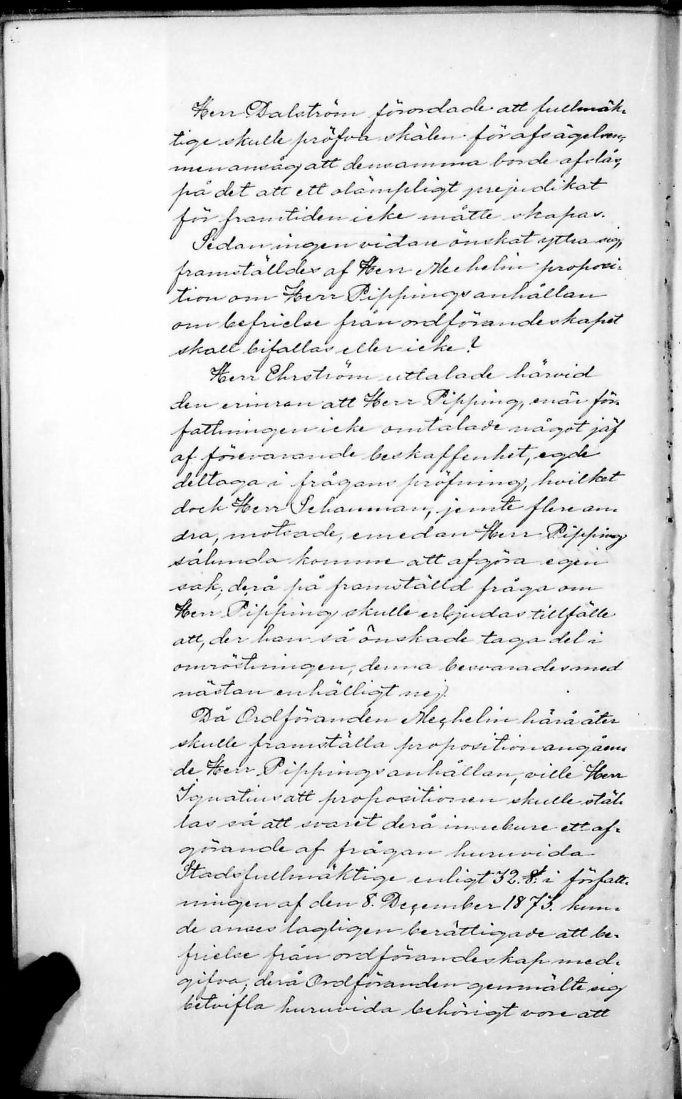 Herr Dalström förordade att fullmäk-
tige skulle pröfva skälen för afsägelsen,
men ansåg att densamma borde afslås,
på det att ett olämpligt prejudikat
för framtiden icke måtte skapas.
Sedan ingen vidare önskat yttra sig,
framställdes af Herr Mechelin proposi-
tion om Herr Pippings anhållan
om befrielse från ordförandeskapet
skall bifallas eller icke?
Herr Ehrström uttalade härvid
den erinran att Herr Pipping, enär för-
fattningen icke omtalade något jäf
af förevarande beskaffenhet, egde
deltaga i frågans pröfning, hvilket
dock Herr Schauman, jemte flere an-
dra, motsade, emedan Herr Pipping
sålunda komme att afgöra egen
sak, derå på framställd fråga om
Herr Pipping skulle erbjudas tillfälle
att, der han så önskade taga del i
omröstningen, denna besvarades med
nästan enhälligt nej.
Då Ordföranden Mechelin härå åter
skulle framställa proposition angåen-
de Herr Pippings anhållan, ville Herr
Ignatius att propositionen skulle stäl-
las så att svaret derå innebure ett af-
görande af frågan huruvida
Stadsfullmäktige enligt 32 §. i författ-
ningen af den 8. December 1873. kun-
de anses lagligen berättigade att be-
frielse från ordförandeskap med-
gifva, derå Ordföranden genmälte sig
betvifla huruvida behörigt vore att